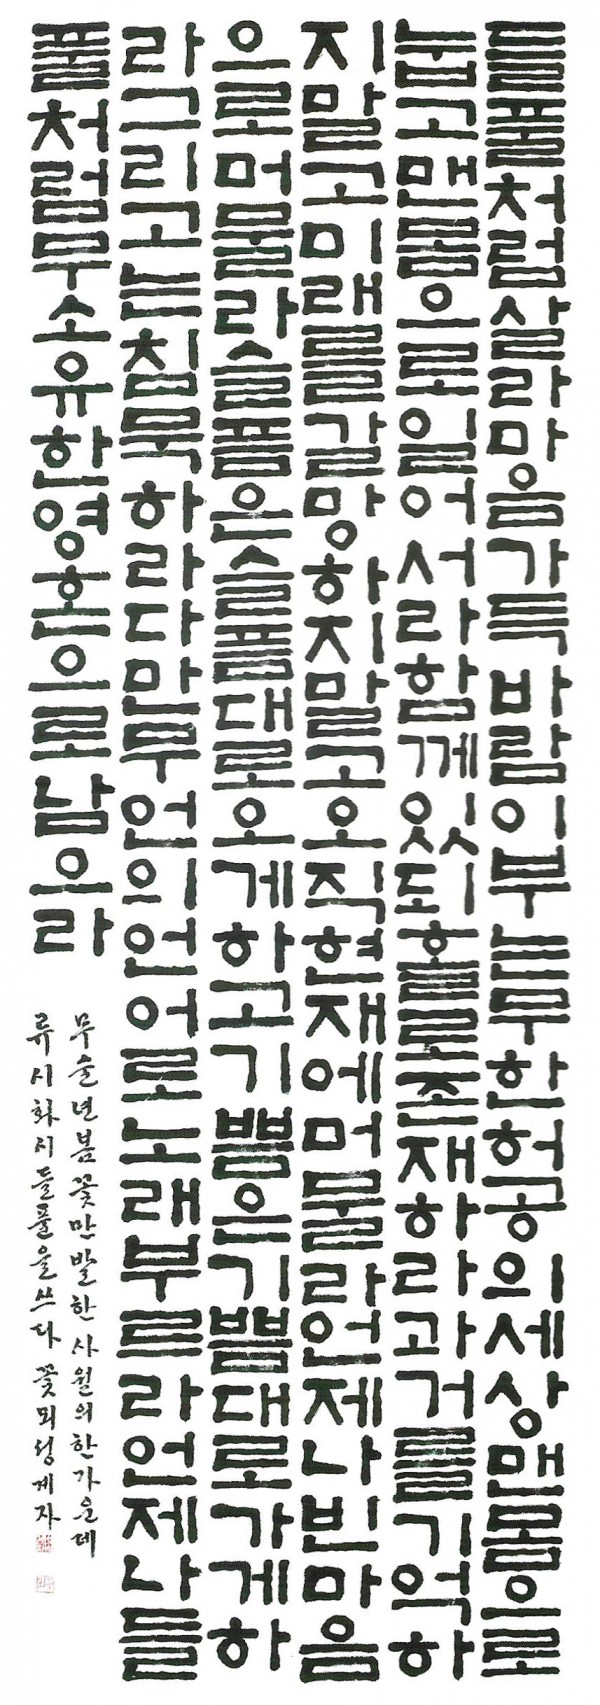 들풀처럼살라마음가득바람이부는무한허공의세상맨몸으로
눕고맨몸으로일어서라함께있되홀로존재하라과거를기억하
지말고미래를갈망하지말고오직현재에머물라언제나빈마음
으로머물라슬픔은슬픔대로오게하고기쁨은기쁨대로가게하
라그리고는침묵하라다만무언의언어로노래부르라언제나들
풀처럼무소유한영혼으로남으라
무술년봄꽃만발한사월의한가운데
류시화시들풀을쓰다 꽃뫼성계자